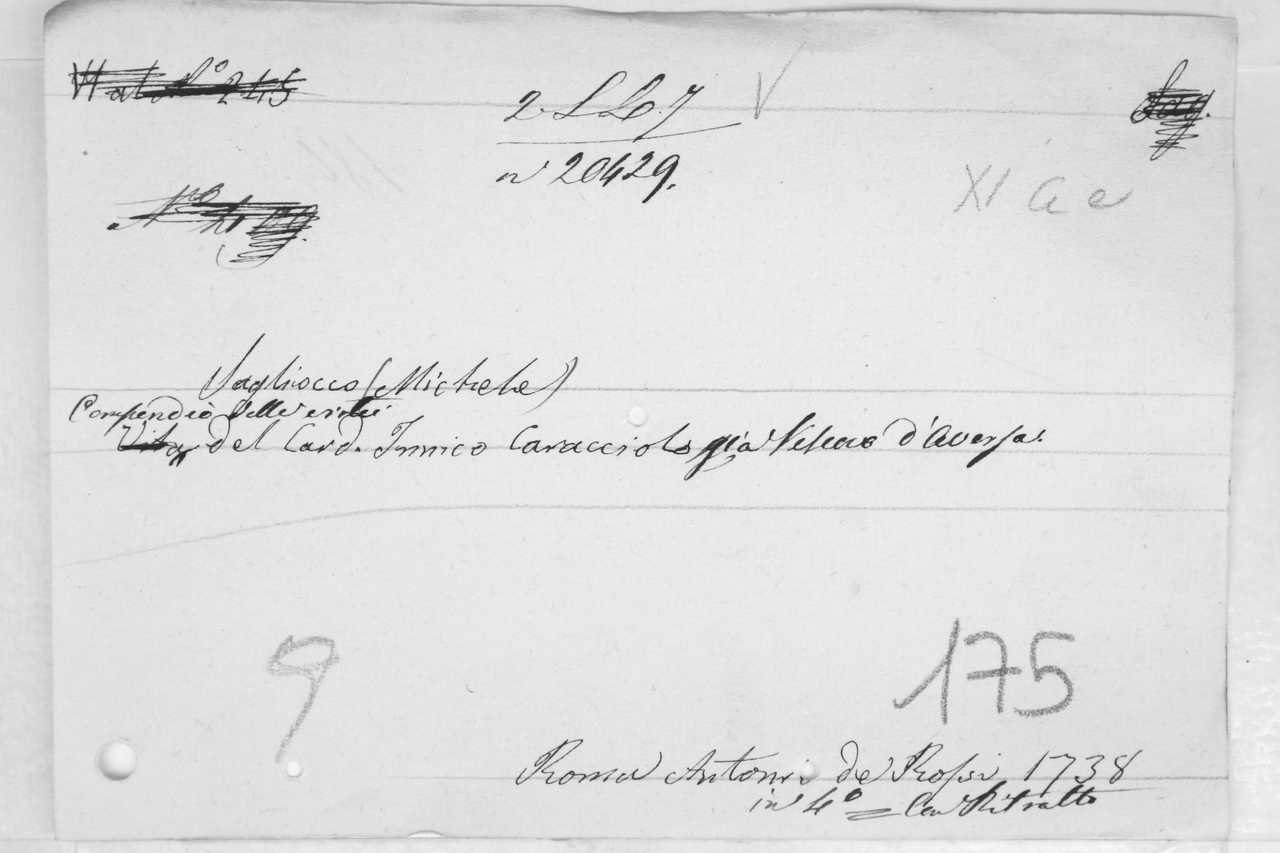 2. L L. 7 V
n 20429.
XI a e
Sagliocco (Michele)
Compendio delle virtù
Vita del Card. Innico Caracciolo già Vescovo d'Aversa.
9
175
Roma Antonio de Rossi 1738
in 4° = Con Ritratto